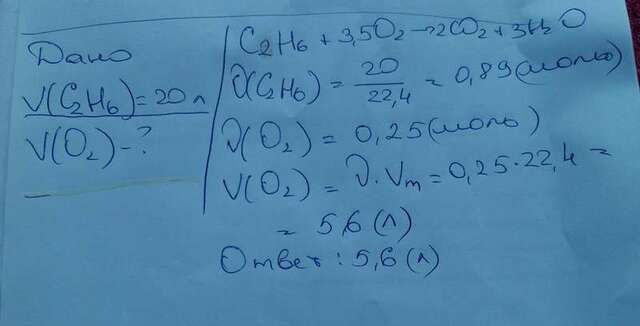 Дано
V(C2H6)=20 л
V(O2)-?
C2H6 + 3,5O2 → 2CO2 + 3H2O
ν(C2H6) = 20/22,4 = 0,89(моль)
ν(O2) = 0,25(моль)
V(O2) = ν·Vm = 0,25·22,4 =
= 5,6 (л)
Ответ: 5,6 (л)